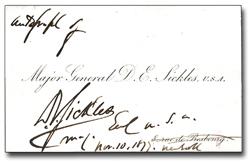 Autograph of
Major General D. E. Sickles, U.S.A.
D Sickles
Maj. Genl U. S. A.
Nov. 10. 187